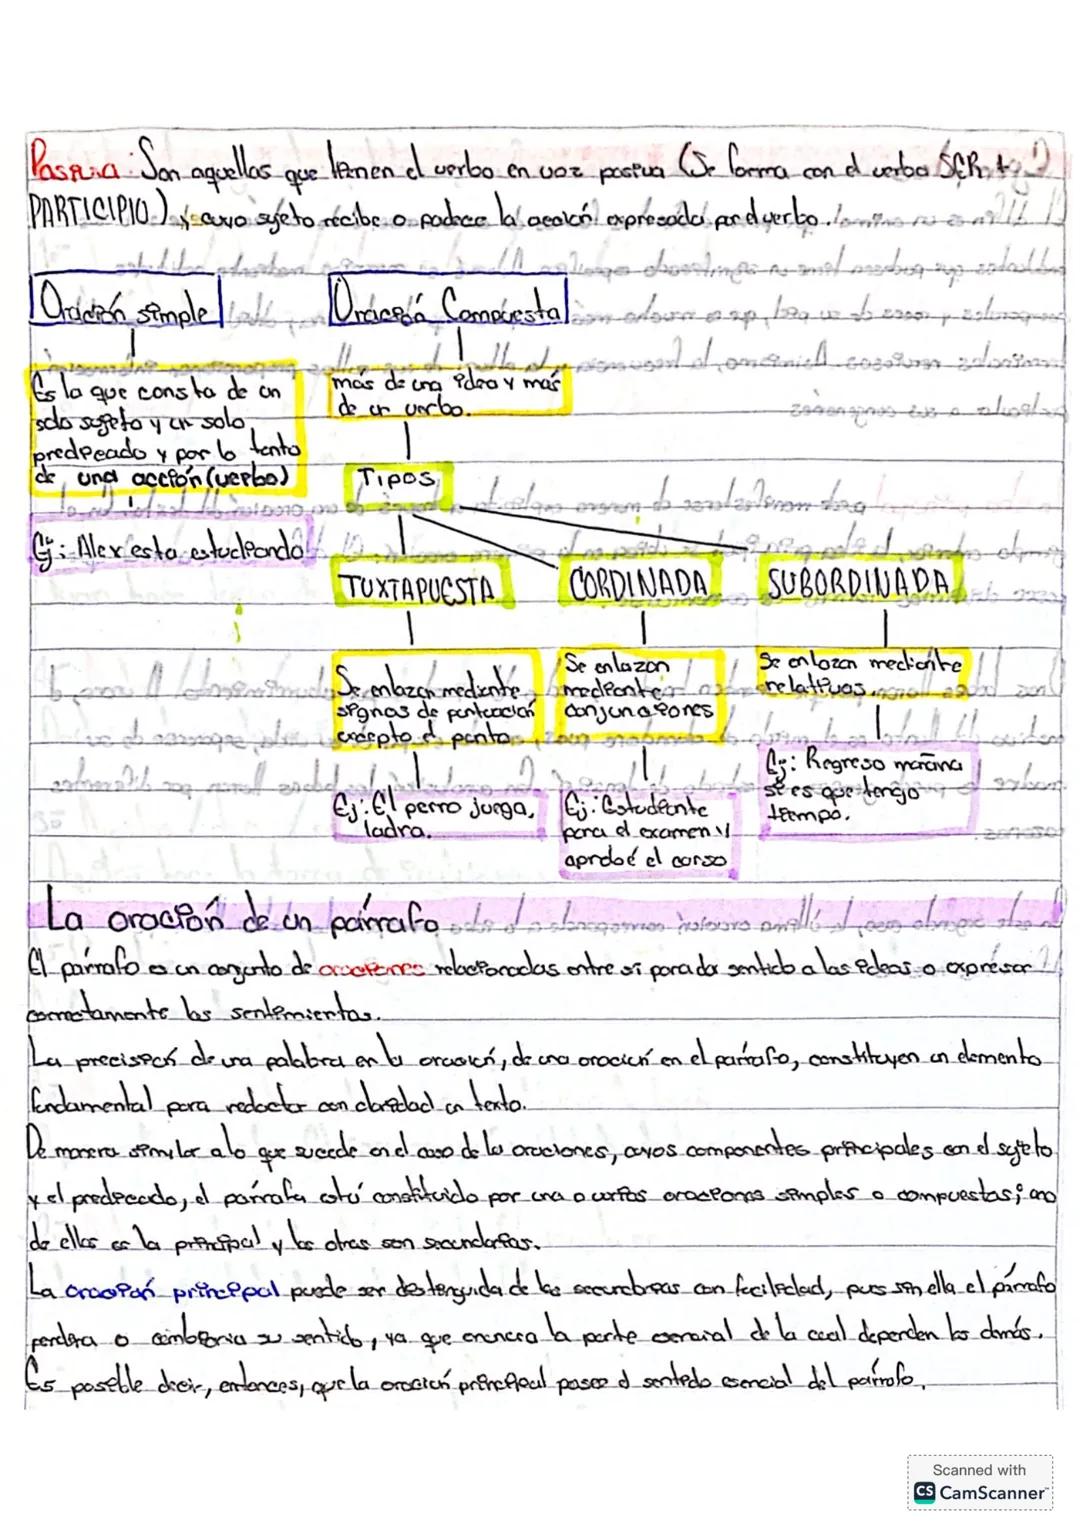 Pasiva: Son aquellas que tienen el verbo en voz pasiva (Se forma con el verbo SER +
PARTICIPIO) y cuyo sujeto recibe o padece la acción expresada por el verbo.
Oración simple
Oración Compuesta
Es la que consta de un
solo sujeto y un solo
predicado y por lo tanto
de una acción (verbo)
Ej: Alex esta estudiando
más de una idea y más
de un verbo.
TIPOS
YUXTAPUESTA
CORDINADA
SUBORDINADA
Se enlazan mediante
signos de puntuación
excepto el punto
Se enlazan
mediante
conjunciones
Se enlazan mediante
relativos.
Ej: El perro juega,
ladra.
Ej: Estudiante
para el examen y
aprobé el curso
Ej: Regreso mañana
si es que tengo
tiempo.
La oración de un párrafo
El párrafo es un conjunto de oraciones relacionadas entre sí para dar sentido a las ideas o expresar
correctamente los sentimientos.
La precisión de una palabra en la oración, de una oración en el párrafo, constituyen un elemento
fundamental para redactar con claridad un texto.
De manera similar a lo que sucede en el caso de las oraciones, cuyos componentes principales son el sujeto
y el predicado, el párrafo está constituido por una o varias oraciones simples o compuestas; una
de ellas es la principal y las otras son secundarias.
La oración principal puede ser distinguida de las secundarias con facilidad, pues sin ella el párrafo
perdera o cambiaria su sentido, ya que enuncia la parte esencial de la cual dependen los demás.
Es posible decir, entonces, que la oración principal posee el sentido esencial del párrafo.
Scanned with
CS CamScanner